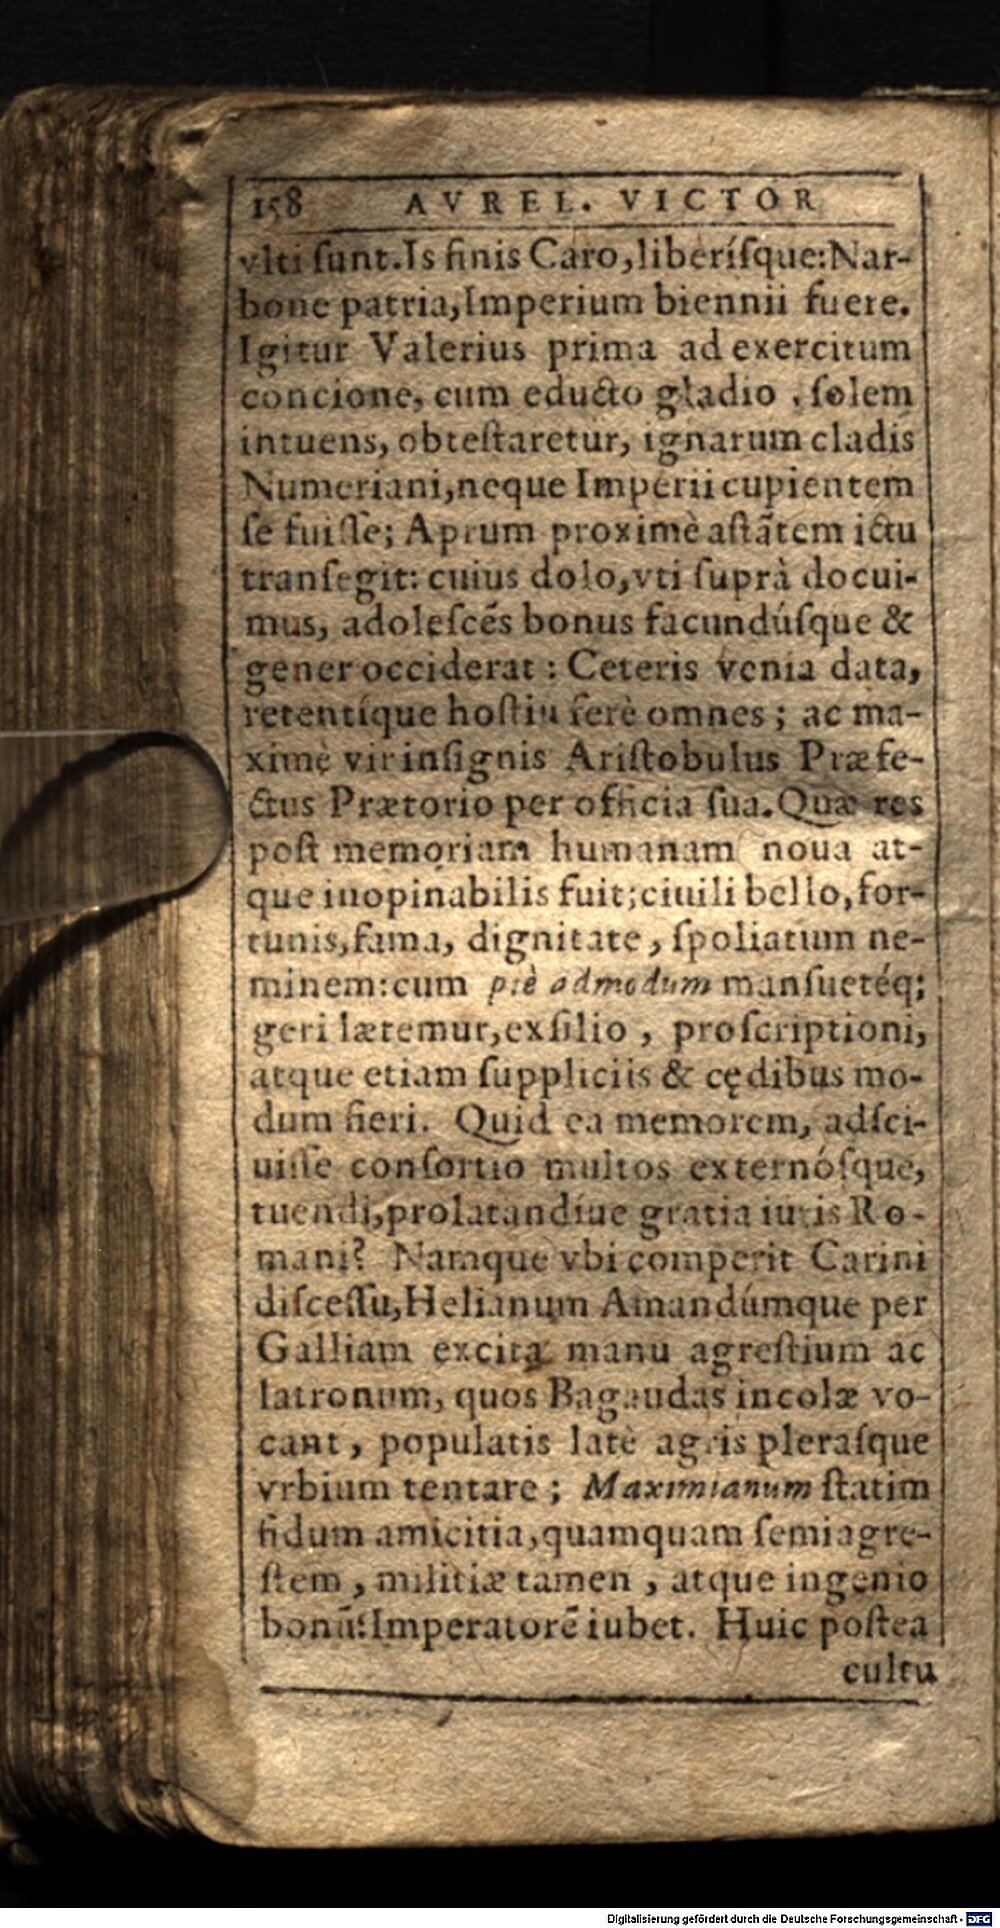 158 AVREL. VICTOR
vlti ſunt. Is finis Caro, liberíſque: Nar-
bone patria, Imperium biennii fuere.
Igitur Valerius prima ad exercitum
concione, cum educto gladio, ſolem
intuens, obteſtaretur, ignarum cladis
Numeriani, neque Imperii cupientem
ſe fuiſſe; Aprum proximè aſtãtem ictu
tranſegit: cuius dolo, vti ſuprà docui-
mus, adoleſcẽs bonus facundúſque &
gener occiderat: Ceteris venia data,
retentíque hoſtiũ ferè omnes; ac ma-
ximè vir inſignis Ariſtobulus Præfe-
ctus Prætorio per officia ſua. Quæ res
poſt memoriam humanam noua at-
que inopinabilis fuit; ciuili bello, for-
tunis, fama, dignitate, ſpoliatum ne-
minem: cum piè admodum manſuetéq;
geri lætemur, exſilio, proſcriptioni,
atque etiam ſuppliciis & cędibus mo-
dum fieri. Quid ea memorem, adſci-
uiſſe conſortio multos externóſque,
tuendi, prolatandíue gratia iuris Ro-
mani? Namque vbi comperit Carini
diſceſſu, Helianum Amandúmque per
Galliam excita manu agreſtium ac
latronum, quos Bagaudas incolæ vo-
cant, populatis latè agris pleraſque
vrbium tentare; Maximianum ſtatim
fidum amicitia, quamquam ſemiagre-
ſtem, militiæ tamen, atque ingenio
bonũ: Imperatorẽ iubet. Huic poſtea
cultu
Digitalisierung gefördert durch die Deutsche Forschungsgemeinschaft - DFG